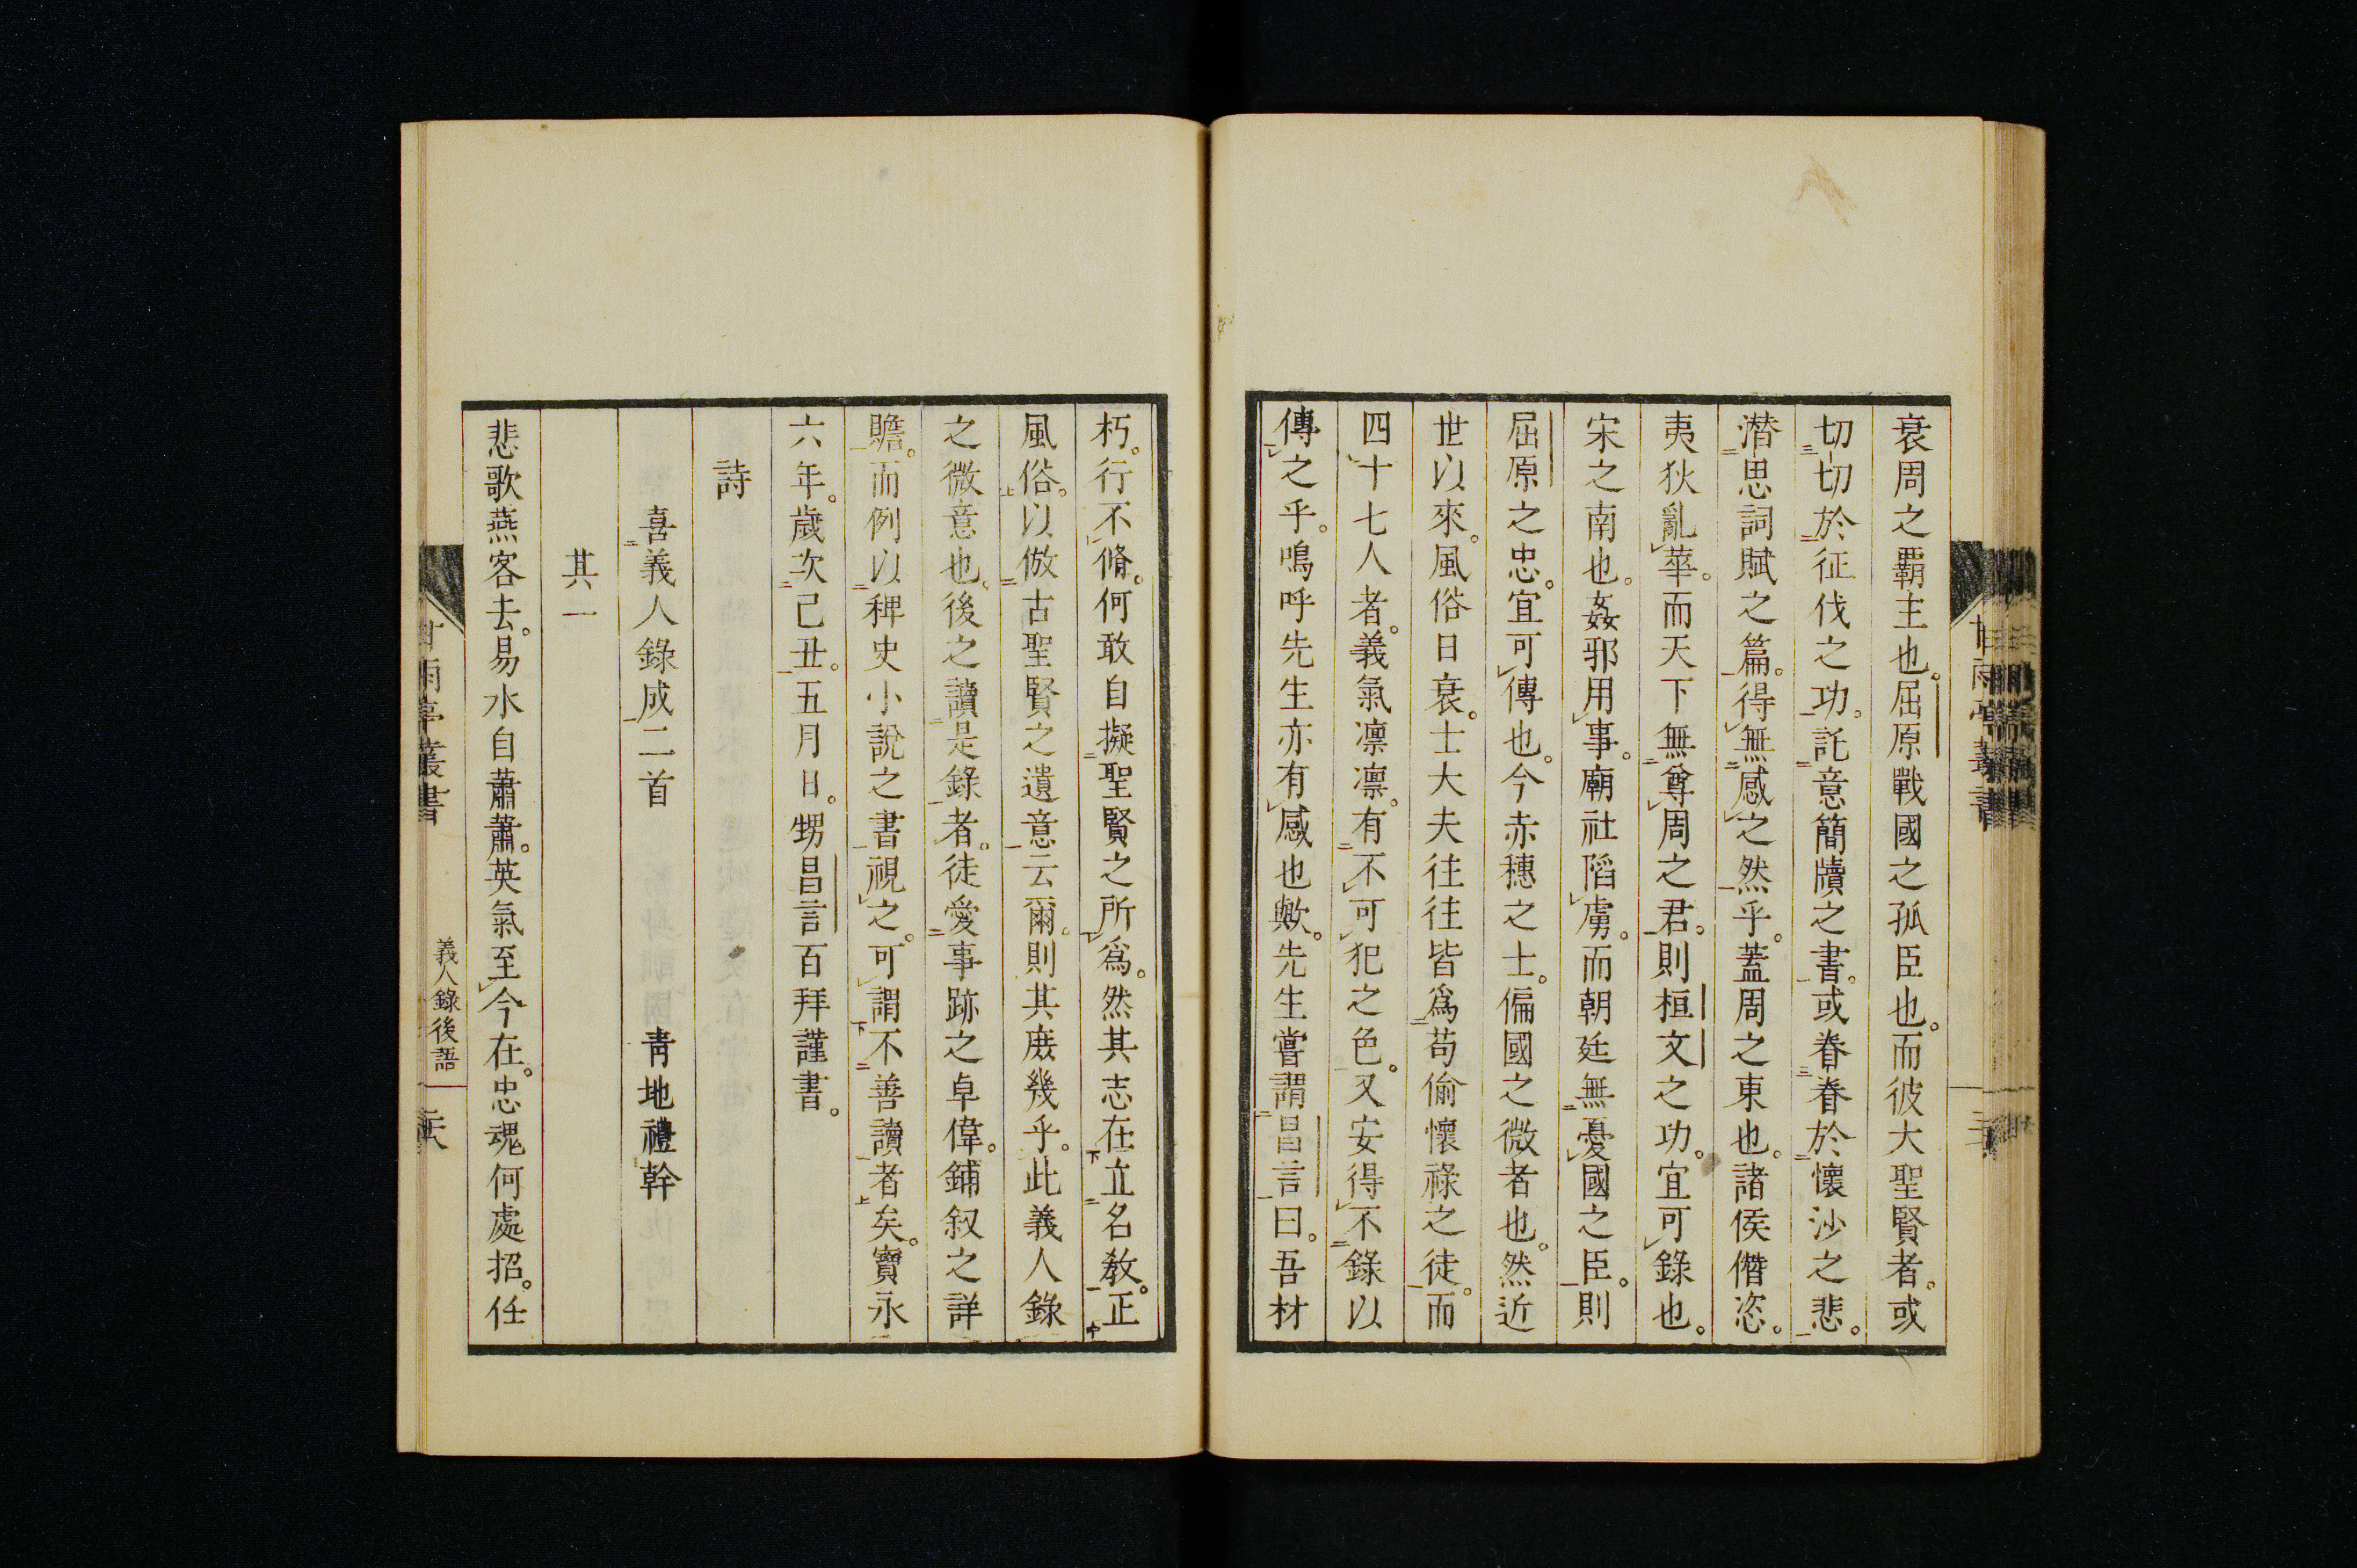 衰周之覇主也。屈原戰國之孤臣也。而彼大聖賢者。或
切切於征伐之功。託意簡牘之書。或眷眷於懷沙之悲。
潜思詞賦之篇。得無感之然乎。蓋周之東也。諸侯僭恣。
夷狄亂華。而天下無尊周之君。則桓文之功。宜可錄也。
宋之南也。姦邪用事。廟社陷虜。而朝廷無憂國之臣。則
屈原之忠。宜可傳也。今赤穗之士。偏國之微者也。然近
世以來。風俗日衰。士大夫往往皆爲苟偷懷祿之徒。而
四十七人者。義氣凛凛。有不可犯之色。又安得不錄以
傳之乎。鳴呼先生亦有感也歟。先生嘗謂昌言曰。吾材
朽。行不脩。何敢自擬聖賢之所爲。然其志在立名教。正
風俗。以倣古聖賢之遺意云爾。則其庶幾乎。此義人錄
之微意也。後之讀是錄者。徒愛事跡之卓偉。鋪叙之詳
贍。而例以稗史小說之書視之。可謂不善讀者矣。寶永
六年。歲次己丑。五月日。甥昌言百拜謹書。
詩
喜義人錄成二首 青地禮幹
其一
悲歌燕客去。易水自蕭蕭。英氣至今在。忠魂何處招。任
甘雨亭叢書 義人錄後語